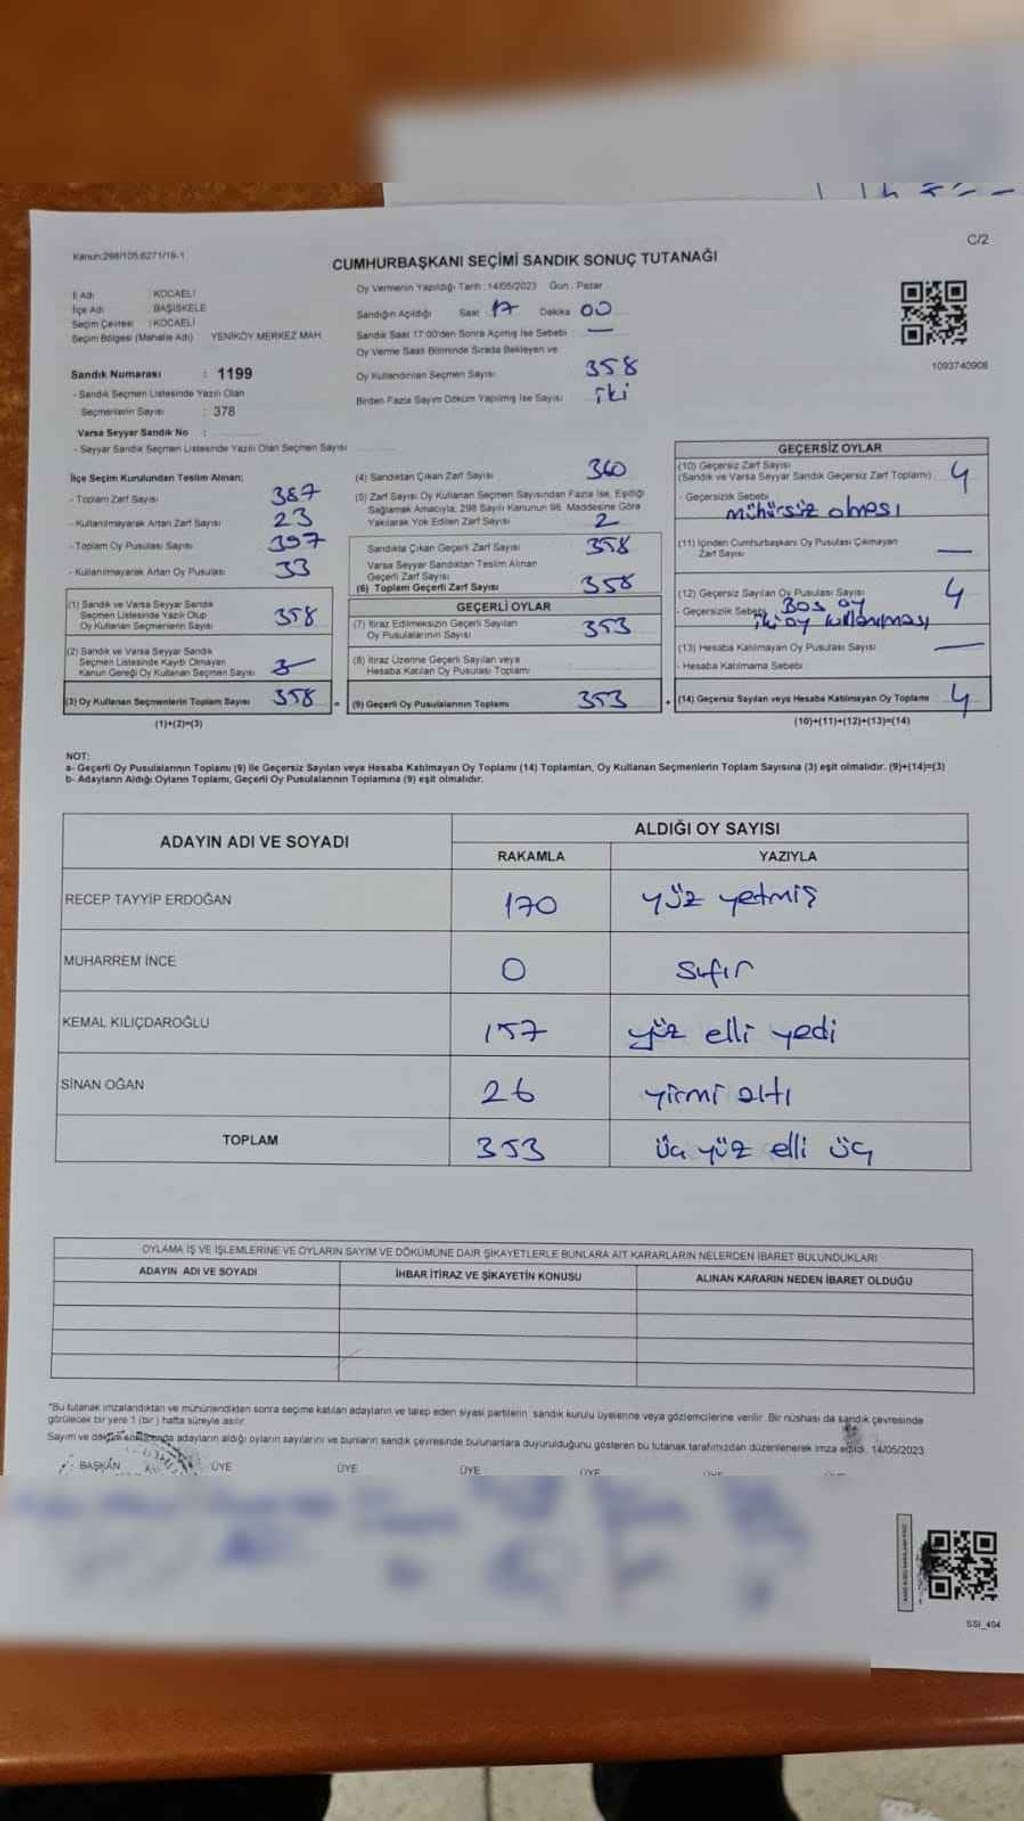 C/2
Kanun:298/105.6271/19-1
CUMHURBAŞKANI SEÇİMİ SANDIK SONUÇ TUTANAĞI
İl Adı : KOCAELİ
İlçe Adı : BAŞİSKELE
Seçim Çevresi : KOCAELİ
Seçim Bölgesi (Mahalle Adı) YENİKÖY MERKEZ MAH
Sandık Numarası : 1199
- Sandık Seçmen Listesinde Yazılı Olan
Seçmenlerin Sayısı : 378
Varsa Seyyar Sandık No :
- Seyyar Sandık Seçmen Listesinde Yazılı Olan Seçmen Sayısı
Oy Vermenin Yapıldığı Tarih : 14/05/2023 Gün : Pazar
Sandığın Açıldığı Saat 17 Dakika 00
Sandık Saat 17:00'den Sonra Açılmış İse Sebebi : —
Oy Verme Saati Bitiminde Sırada Bekleyen ve
Oy Kullandırılan Seçmen Sayısı 358
Birden Fazla Sayım Döküm Yapılmış İse Sayısı iki
1093740908
İlçe Seçim Kurulundan Teslim Alınan;
- Toplam Zarf Sayısı 387
- Kullanılmayarak Artan Zarf Sayısı 23
- Toplam Oy Pusulası Sayısı 397
- Kullanılmayarak Artan Oy Pusulası 33
(1) Sandık ve Varsa Seyyar Sandık
Seçmen Listesinde Yazılı Olup
Oy Kullanan Seçmenlerin Sayısı 358
(2) Sandık ve Varsa Seyyar Sandık
Seçmen Listesinde Kayıtlı Olmayan
Kanun Gereği Oy Kullanan Seçmen Sayısı
(3) Oy Kullanan Seçmenlerin Toplam Sayısı 358
(1)+(2)=(3)
(4) Sandıktan Çıkan Zarf Sayısı 360
(5) Zarf Sayısı Oy Kullanan Seçmen Sayısından Fazla İse, Eşitliği
Sağlamak Amacıyla; 298 Sayılı Kanunun 98. Maddesine Göre
Yakılarak Yok Edilen Zarf Sayısı 2
Sandıkta Çıkan Geçerli Zarf Sayısı 358
Varsa Seyyar Sandıktan Teslim Alınan
Geçerli Zarf Sayısı
(6) Toplam Geçerli Zarf Sayısı 358
GEÇERLİ OYLAR
(7) İtiraz Edilmeksizin Geçerli Sayılan
Oy Pusulalarının Sayısı 353
(8) İtiraz Üzerine Geçerli Sayılan veya
Hesaba Katılan Oy Pusulası Toplamı
(9) Geçerli Oy Pusulalarının Toplamı 353
GEÇERSİZ OYLAR
(10) Geçersiz Zarf Sayısı
(Sandık ve Varsa Seyyar Sandık Geçersiz Zarf Toplamı) 4
- Geçersizlik Sebebi
mühürsüz olması
(11) İçinden Cumhurbaşkanı Oy Pusulası Çıkmayan
Zarf Sayısı —
(12) Geçersiz Sayılan Oy Pusulası Sayısı 4
- Geçersizlik Sebebi Boş oy
iki oy kullanması
(13) Hesaba Katılmayan Oy Pusulası Sayısı —
- Hesaba Katılmama Sebebi
(14) Geçersiz Sayılan veya Hesaba Katılmayan Oy Toplamı 4
(10)+(11)+(12)+(13)=(14)
NOT:
a- Geçerli Oy Pusulalarının Toplamı (9) ile Geçersiz Sayılan veya Hesaba Katılmayan Oy Toplamı (14) Toplamları, Oy Kullanan Seçmenlerin Toplam Sayısına (3) eşit olmalıdır. (9)+(14)=(3)
b- Adayların Aldığı Oyların Toplamı, Geçerli Oy Pusulalarının Toplamına (9) eşit olmalıdır.
ADAYIN ADI VE SOYADI ALDIĞI OY SAYISI
RAKAMLA YAZIYLA
RECEP TAYYİP ERDOĞAN 170 yüz yetmiş
MUHARREM İNCE 0 sıfır
KEMAL KILIÇDAROĞLU 157 yüz elli yedi
SİNAN OĞAN 26 yirmi altı
TOPLAM 353 üç yüz elli üç
OYLAMA İŞ VE İŞLEMLERİNE VE OYLARIN SAYIM VE DÖKÜMÜNE DAİR ŞİKAYETLERLE BUNLARA AİT KARARLARIN NELERDEN İBARET BULUNDUKLARI
ADAYIN ADI VE SOYADI İHBAR İTİRAZ VE ŞİKAYETİN KONUSU ALINAN KARARIN NEDEN İBARET OLDUĞU
"Bu tutanak imzalandıktan ve mühürlendikten sonra seçime katılan adayların ve talep eden siyasi partilerin sandık kurulu üyelerine veya gözlemcilerine verilir. Bir nüshası da sandık çevresinde
görülecek bir yere 1 (bir) hafta süreyle asılır.
Sayım ve döküm sonucunda adayların aldığı oyların sayılarını ve bunların sandık çevresinde bulunanlara duyurulduğunu gösteren bu tutanak tarafımızdan düzenlenerek imza edildi. 14/05/2023
BAŞKAN ÜYE ÜYE ÜYE ÜYE
SSI_404